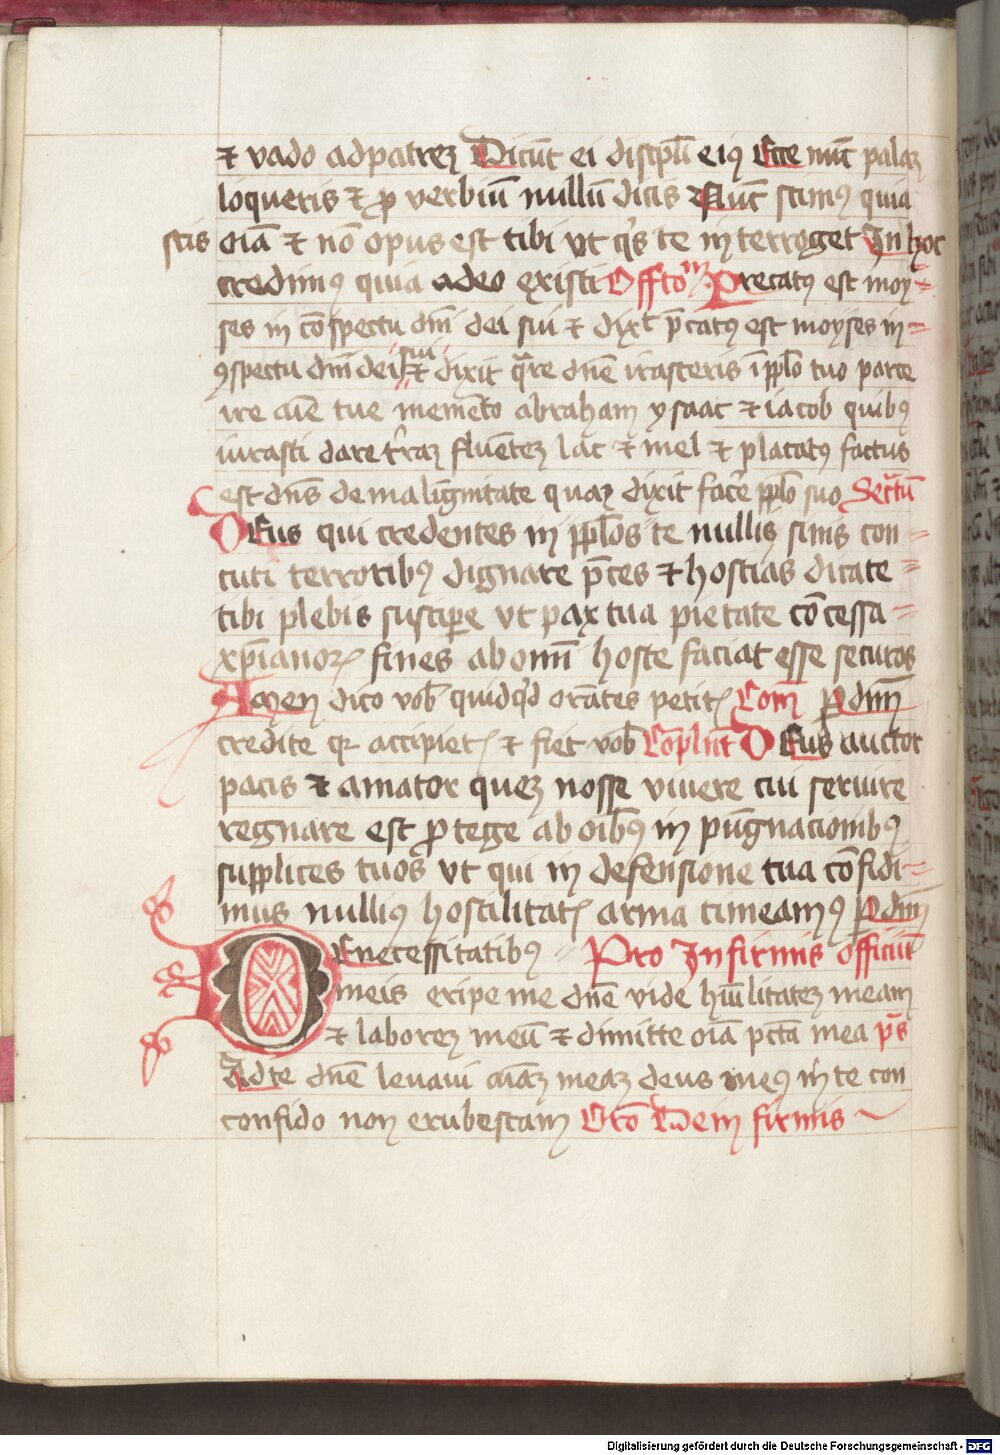 ⁊ vado ad patreꝫ Dicūt ei discipl̄i eiꝰ Ecce nūc palaꝫ
loqueris ⁊ ꝓverbiū nullū dicis Nūc scimꝰ quia
scis oīa ⁊ nō opus est tibi vt qͥs te interroget In hoc
credimꝰ quia a deo existi Offtoᵐ Precatꝰ est moy
ses in cōspectu dn̄i dei sui ⁊ dixͭ p̄catꝰ est moyses in
ꝯspectu dn̄i dei sui ⁊ dixit qͣre dn̄e irasceris ī ppl̄o tuo parce
ire aīe tue memēto abraham ysaac ⁊ iacob quibꝰ
iurasti dare t̄raꝫ fluēteꝫ lac ⁊ mel ⁊ placatꝰ factus
est dn̄s de malignitate quaꝫ dixit fac̄e ppl̄o suo Secͬtū
DEus qui credentes in ppl̄os te nullis sinis con
cuti terroribꝰ dignare p̄ces ⁊ hostias dicate
tibi plebis suscipe vt pax tua pietate cōcessa
xp̄ianoꝝ fines ab om̄i hoste faciat esse securos
Amen dico vob̄ quidqͥd orātes petitꝭ Com̄ ꝑ dn̄m
credite qꝛ accipietꝭ ⁊ fiet vob̄ Cōpl̄nt DEus auctor
pacis ⁊ amator queꝫ nosse viuere cui seruire
regnare est ꝓtege ab oīb̄ꝰ inpūgnacionibꝰ
supplices tuos vt qui in defensione tua cōfidi
mus nulliꝰ hostilitatꝭ arma timeamꝰ ꝑ dn̄m
DE necessitatibꝰ Pro Infirmis officiū
meis eripe me dn̄e vide hūilitateꝫ meam
⁊ laboreꝫ meū ⁊ dimitte oīa pctā mea p̄s
Ad te dn̄e leuaui aīaꝫ meaꝫ deus meꝰ in te con
confido non erubescam